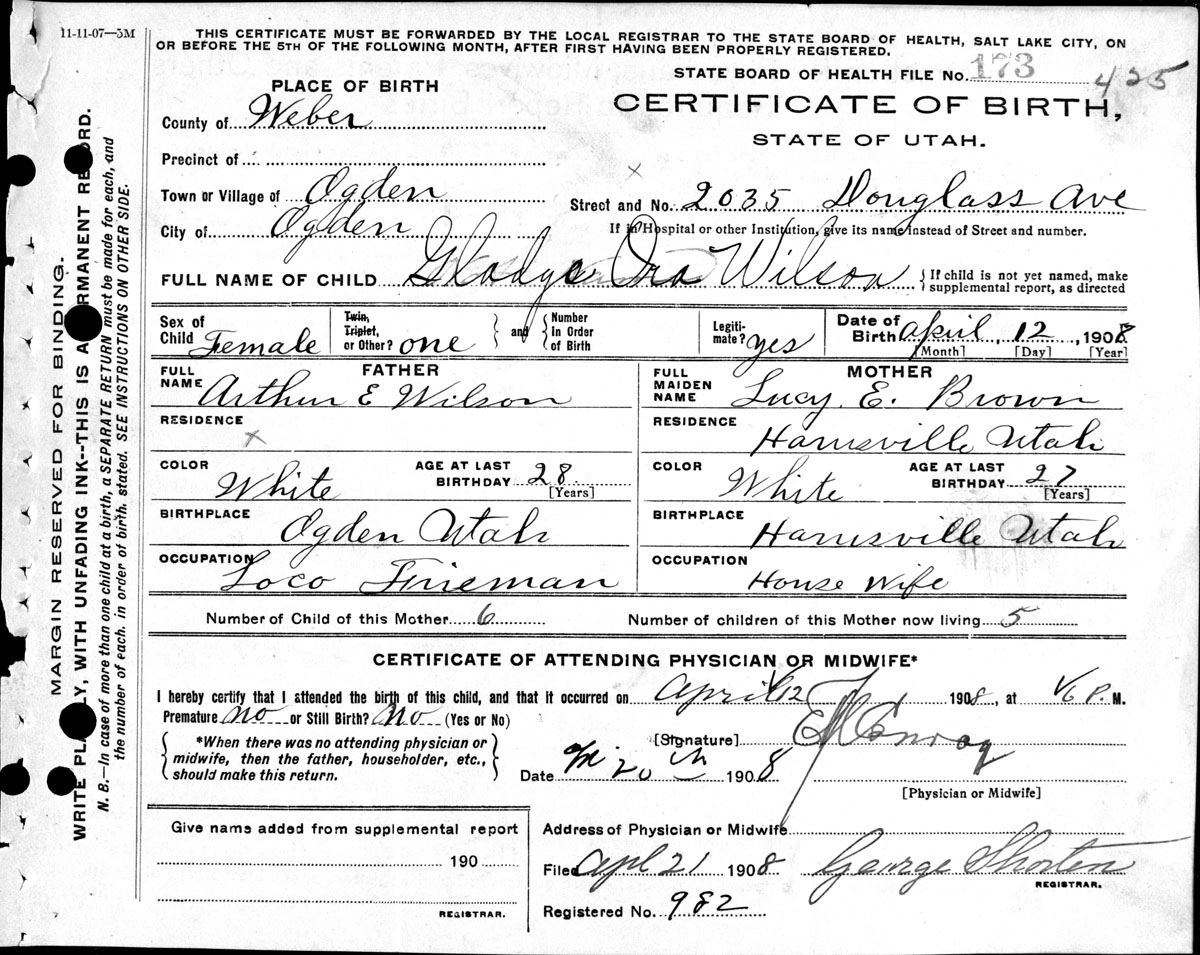 11-11-07—5M
THIS CERTIFICATE MUST BE FORWARDED BY THE LOCAL REGISTRAR TO THE STATE BOARD OF HEALTH, SALT LAKE CITY, ON
OR BEFORE THE 5TH OF THE FOLLOWING MONTH, AFTER FIRST HAVING BEEN PROPERLY REGISTERED.
STATE BOARD OF HEALTH FILE No. 173 425
PLACE OF BIRTH
CERTIFICATE OF BIRTH,
STATE OF UTAH.
County of Weber
Precinct of
Town or Village of Ogden
Street and No. 2035 Douglass Ave
City of Ogden
If in Hospital or other Institution, give its name instead of Street and number.
FULL NAME OF CHILD Gladys Ora Wilson
If child is not yet named, make
supplemental report, as directed
Sex of Child Female
Twin, Triplet, or Other? one
and Number in Order of Birth
Legitimate? yes
Date of Birth April 12, 1908
[Month] [Day] [Year]
FATHER
FULL NAME Arthur E Wilson
RESIDENCE x
COLOR White
AGE AT LAST BIRTHDAY 28 [Years]
BIRTHPLACE Ogden Utah
OCCUPATION Loco Frieman
MOTHER
FULL MAIDEN NAME Lucy. E. Brown
RESIDENCE Harrisville Utah
COLOR White
AGE AT LAST BIRTHDAY 27 [Years]
BIRTHPLACE Harrisville Utah
OCCUPATION House Wife
Number of Child of this Mother 6 Number of children of this Mother now living 5
CERTIFICATE OF ATTENDING PHYSICIAN OR MIDWIFE*
I hereby certify that I attended the birth of this child, and that it occurred on April 12 1908, at 6 P. M.
Premature no or Still Birth? No (Yes or No)
*When there was no attending physician or
midwife, then the father, householder, etc.,
should make this return.
[Signature]
Date 20th 1908
[Physician or Midwife]
Give name added from supplemental report
190
REGISTRAR.
Address of Physician or Midwife
Filed Apl 21 1908 George Shorten
REGISTRAR.
Registered No. 982
MARGIN RESERVED FOR BINDING.
WRITE PLAINLY, WITH UNFADING INK--THIS IS A PERMANENT RECORD.
N. B.—In case of more than one child at a birth, a SEPARATE RETURN must be made for each, and
the number of each, in order of birth, stated. SEE INSTRUCTIONS ON OTHER SIDE.